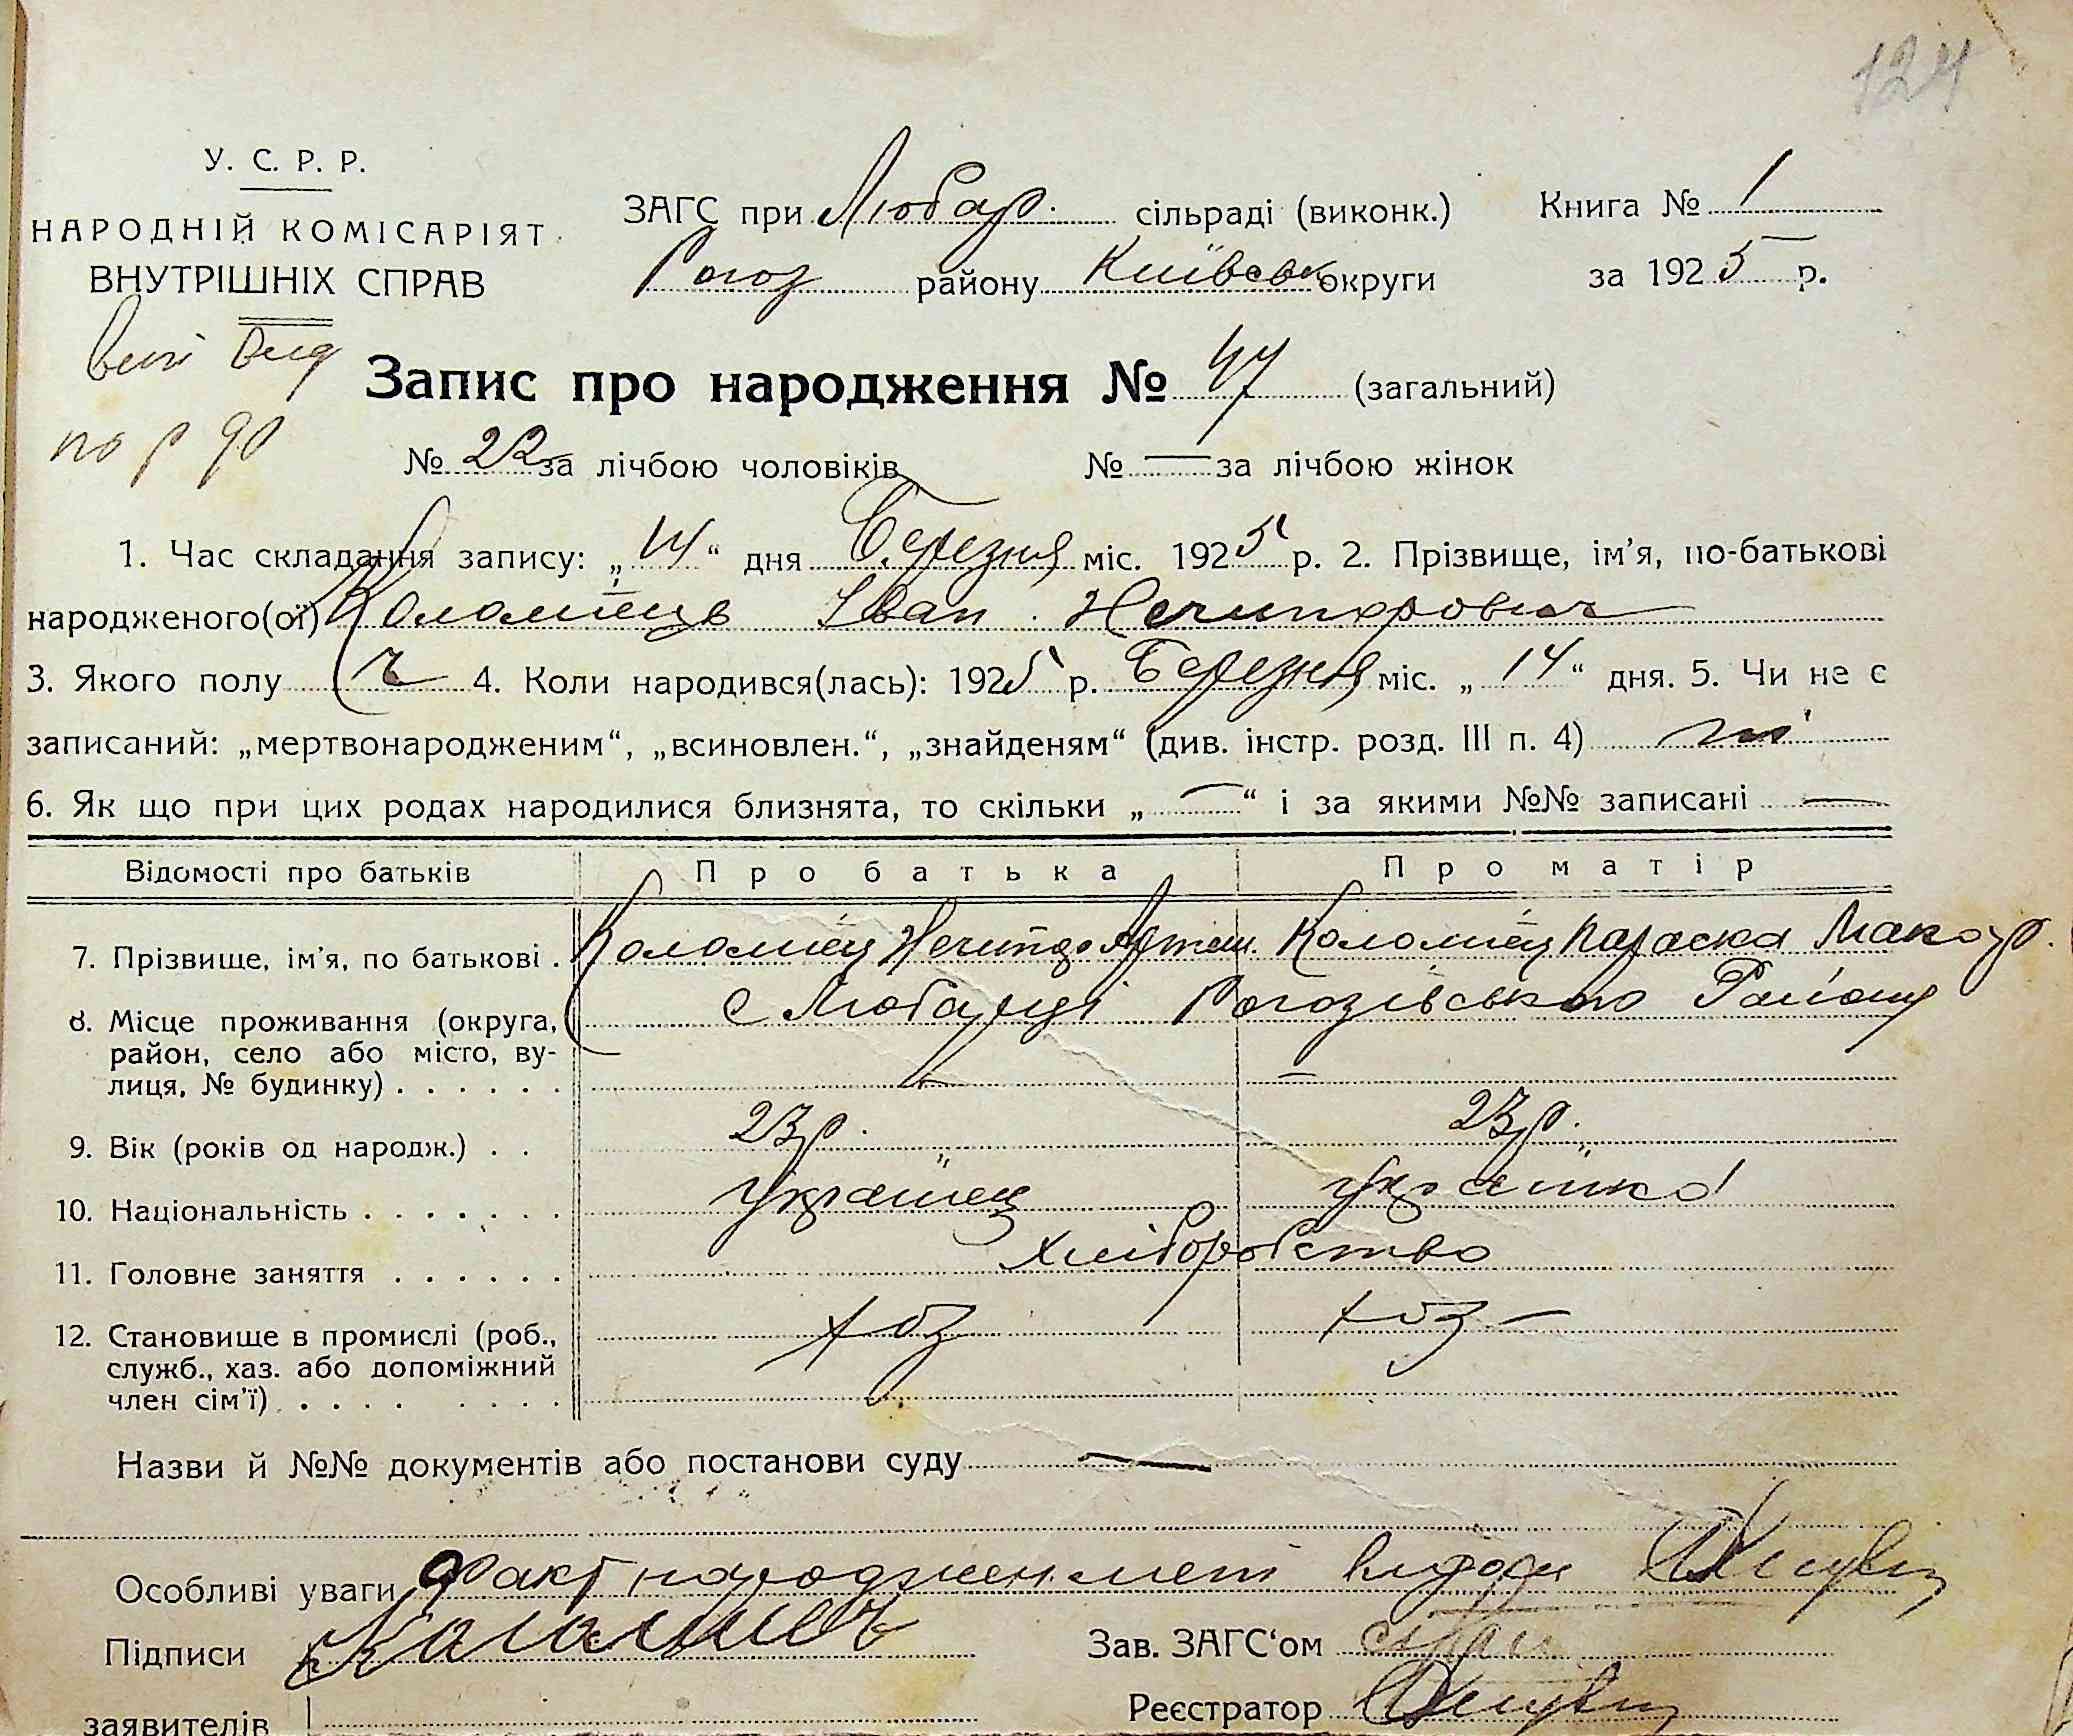 124
У. С. Р. Р.
НАРОДНІЙ КОМІСАРІЯТ
ВНУТРІШНІХ СПРАВ
ЗАГС при Любар. сільраді (виконк.)
Рогоз району Київськ округи
Книга № 1
за 1925 р.
по р 90
Запис про народження № 47 (загальний)
№ 22 за лічбою чоловіків № — за лічбою жінок
1. Час складання запису: „14“ дня Березня міс. 1925 р. 2. Прізвище, ім’я, по-батькові
народженого(ої) Коломієць Іван Нечипорович
3. Якого полу ч 4. Коли народився(лась): 1925 р. Березня міс. „14“ дня. 5. Чи не є
записаний: „мертвонародженим“, „всиновлен.“, „знайденям“ (див. інстр. розд. III п. 4) ні
6. Як що при цих родах народилися близнята, то скільки „—“ і за якими №№ записані —
Відомості про батьків Про батька Про матір
7. Прізвище, ім’я, по батькові . Коломієц Нечипор Артем. Коломієц Параска Макар.
8. Місце проживання (округа, с Любарці Рогозівського Району
район, село або місто, ву-
лиця, № будинку) . . . . . .
9. Вік (років од народж.) . . 23 р. 23 р.
10. Національність . . . . . . . українец українка
11. Головне заняття . . . . . . Хліборобство
12. Становище в промислі (роб., хоз хоз –
служб., хаз. або допоміжний
член сім’ї) . . . . . . . .
Назви й №№ документів або постанови суду —
Особливі уваги Факт народження
Підписи Коломиец
заявителів
Зав. ЗАГС‘ом
Реєстратор